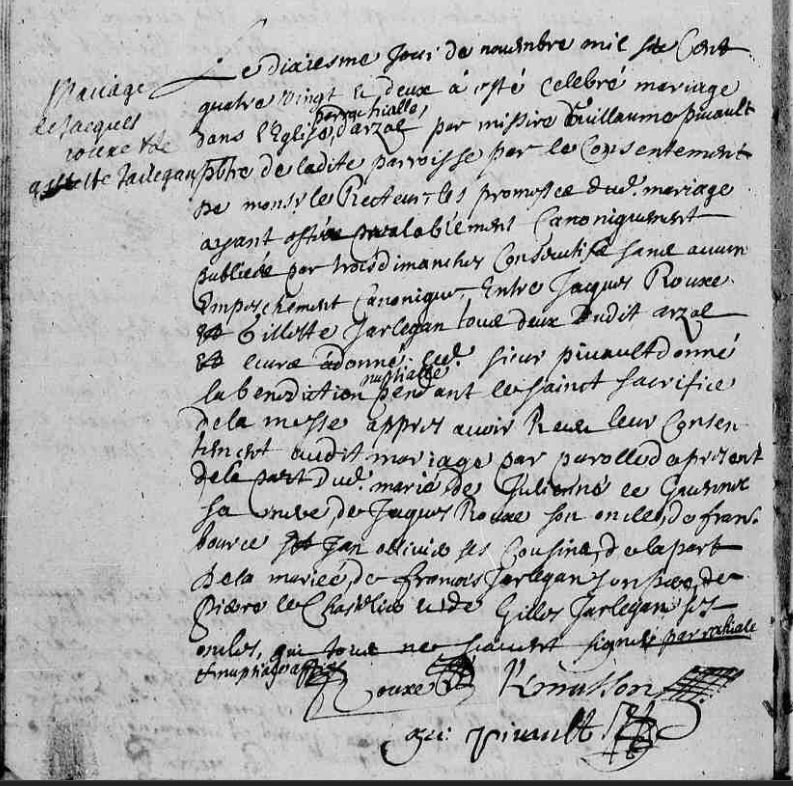 Mariage
de Jacques
rouxe & de
gillette Jarlegan
Le dixiesme Jour de novembre mil six Cent
quatre Vingt et deux à esté celebré mariage
parrochialle,
dans l'Eglise d'arzal par missire Guillaume pivault
pbtre de ladite parroisse par le Consentement
de monsr le Recteur les promesses dud. mariage
ayant esté prealablement Canoniquement
publiées par trois dimanches Consecutifs sans aucun
Empeschement Canonique, Entre Jacques Rouxe
Gillette Jarlegan tous deux dudit arzal
& leurs à donné led. sieur pivault donné
nuptialle
la benediction pendant le sainct sacrifice
de la messe appres avoir Receu leur Consen-
tement audit mariage par parolle de present
de la part dud. marié de Julienne le Guennec
sa mere, de Jacques Rouxe son oncle, de fran-
Jan ses Cousins, de la part
de la mariée, de francois Jarlegan son pere, de
Pierre le et de Gilles Jarlegan ses
oncles, qui tous ne scavent signer parrochiale
et nuptiale
Rouxe
G. pivault